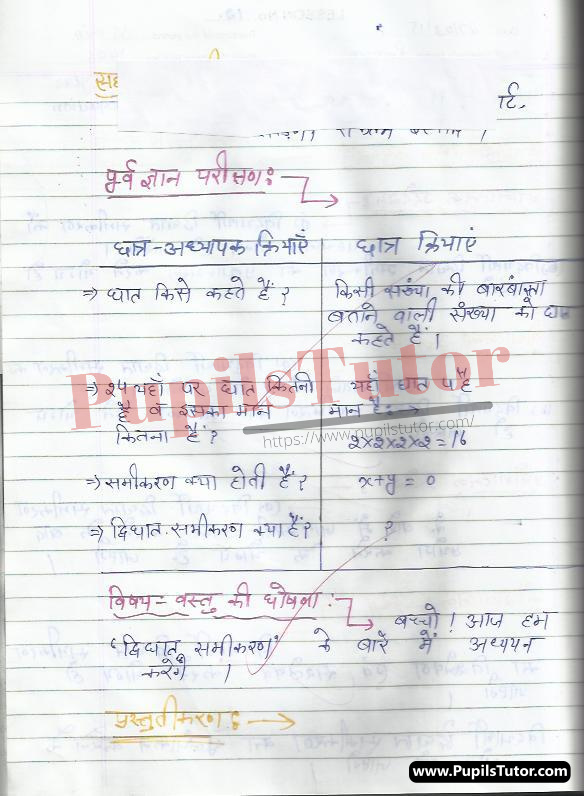 सह
र्ट,
पूर्व ज्ञान परीक्षण :-
छात्र-अध्यापक क्रियाएँ
छात्र क्रियाएं
⇒ घात किसे कहते हैं ?
किसी संख्या की बारंबारता
बताने वाली संख्या को घात
कहते हैं ।
⇒ २५ यहाँ पर घात कितनी
है व इसका मान
कितना है ?
यहाँ घात ५ है
मान है :→
२×२×२×२ = 16
⇒ समीकरण क्या होती हैं ?
x+y = 0
⇒ द्विघात समीकरण क्या हैं ?
?
विषय-वस्तु की घोषना :
बच्चो ! आज हम
'द्विघात समीकरण' के बारे में अध्ययन
करेंगे ।
प्रस्तुतीकरण :- →
PupilsTutor
https://www.pupilstutor.com/
www.PupilsTutor.com